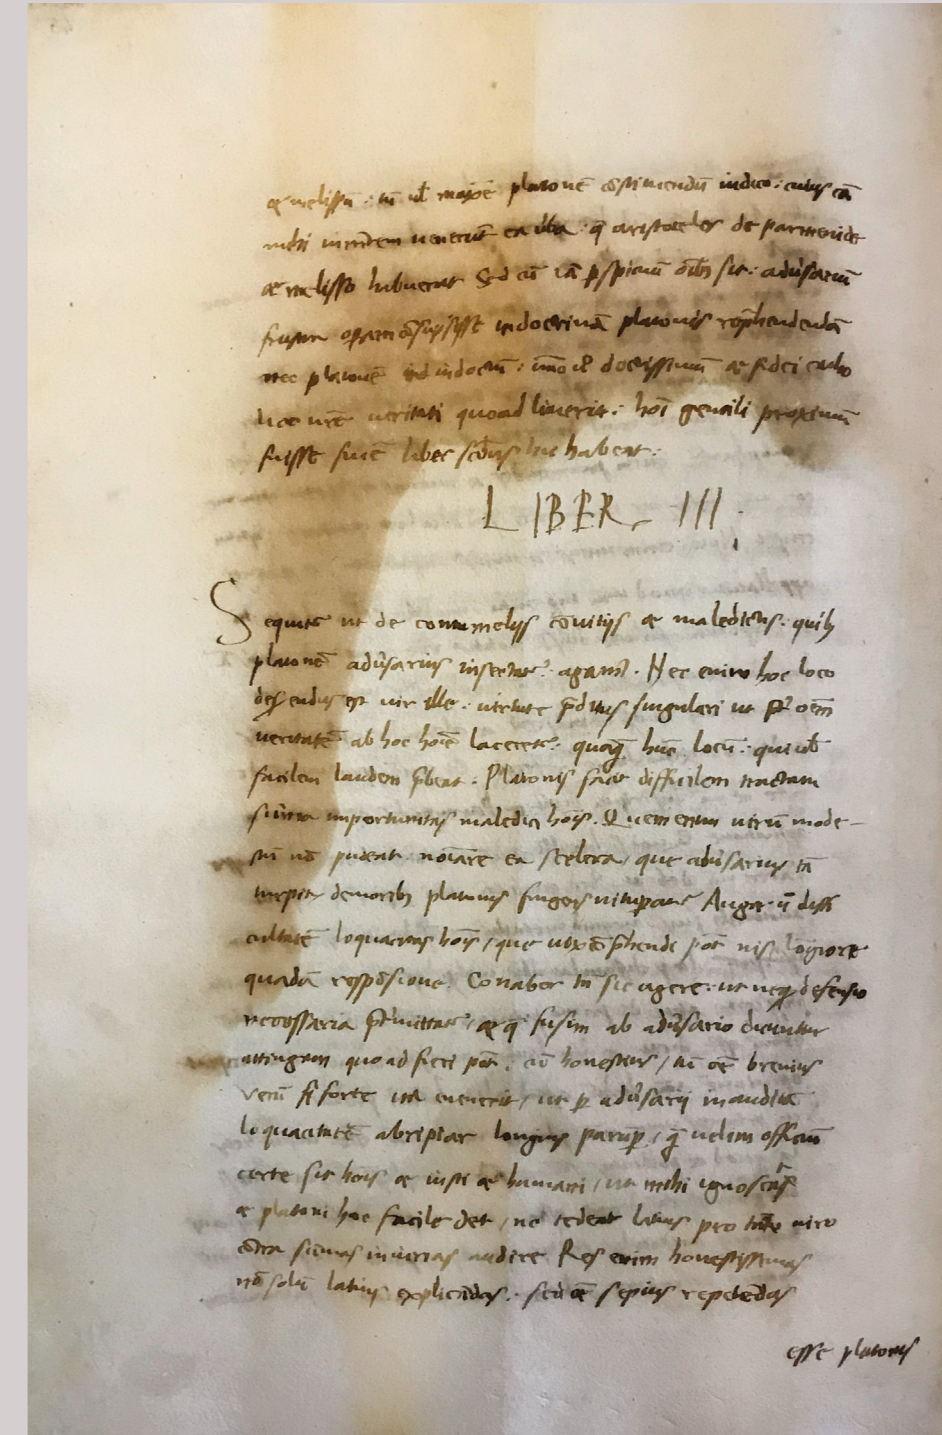 & melissū: tū vl̄ maxīe platonē ōstimendū iudico: cuius cā
mihi in mētem venerūt ea illa: q̄ aristoteles de parmenide
& melisso hubuerat Sed cū iā pspicuū oībus sit: adūsariū
frustra operam ōsūpsisse in doctrinā platonis rephendendā
nec platonē indoctū: imo vl̄ doctissimū & fidei catho
lice nrē veritati quoad licuerit: hoī gentili proximū
fuisse finē liber scd̄us hic habeat:
LIBER III
Sequitr̄ ut de contumelijs cōvitijs & maledictis: quib;
platonē adūsarius insectatr̄: agamꝰ. Nec enim hoc loco
deserendus est vir ille: virtute pditus singulari ut p oēm
veritatē ab hoc hoīe laceretr̄: quāq̄ hūc locū: qui
facilem laudem p̄beat: Platonis facit difficilem tractatu
sūma importunitas maledici hoīs. Quem enim virū mode-
stū nō pudeat noīare ea scelera, que adūsarius tā
turpitr̄ de morib; platonis fingens vitupat Auget ū diffi
cultatē loquacitas hoīs, que vix ōp̄hendi pōt nisi lōgiore
quadā respōsione. Conabor tn̄ sic agere: ut neq; defensio
necessaria p̄tmittatr̄, & q̄ fusim ab adūsario dicuntur
attingam quoad fieri pōt: cū honestius, tū ēt brevius
Verū si forte ita evenerit, ut p adūsarij inauditā
loquacitatē abripiar longius paup, q̄ velim officiū
certe sit hoīs & iusti & humani, ut mihi ignoscas
& platoni hoc facile det, ne tedeat latius pro tāto viro
ōtra suas iniurias audire Res enim honestissimas
nō solū latius explicādas: sed ēt sepius repetēdas
esse platonis